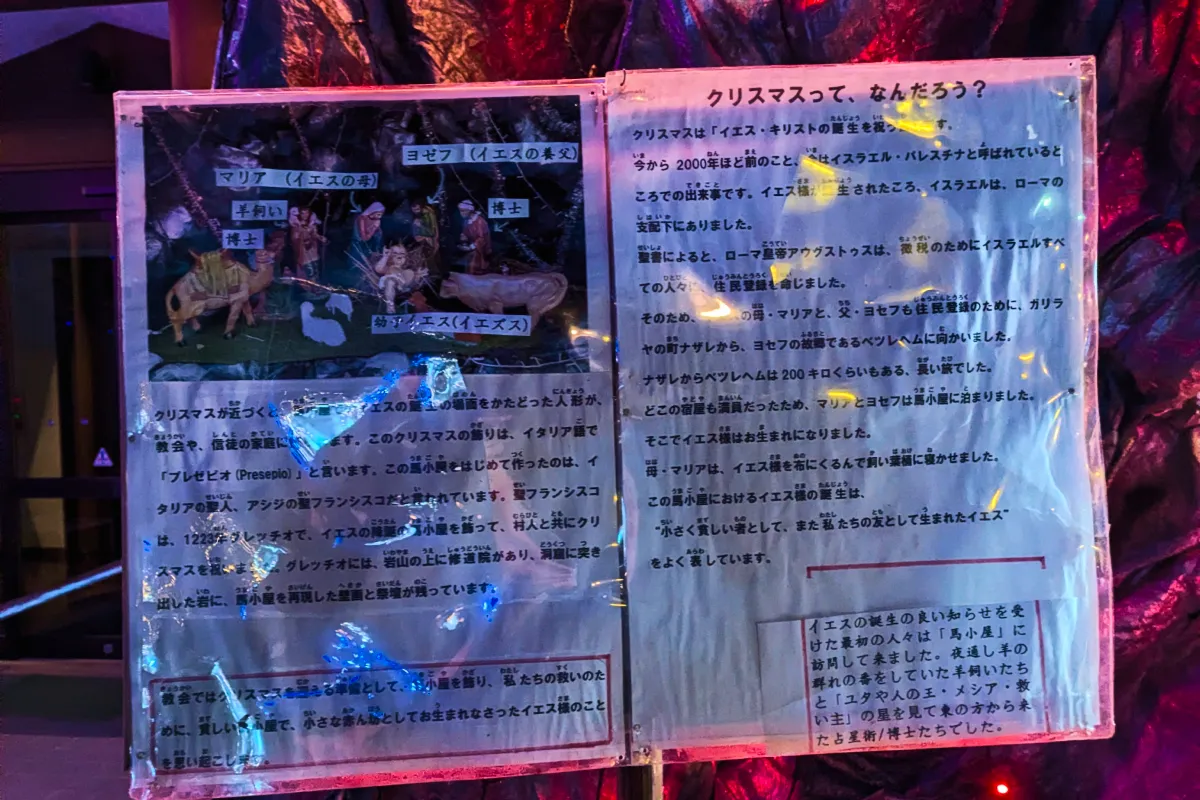 ヨゼフ (イエスの養父)
マリア (イエスの母)
羊飼い
博士
博士
イエス(イエズス)
クリスマスが近づくと、 イエスの の場面をかたどった人形が、
教会や、信徒の家庭に ます。このクリスマスの飾りは、イタリア語で
「プレゼピオ(Presepio)」と言います。この馬小屋をはじめて作ったのは、イ
タリアの聖人、アシジの聖フランシスコだと言われています。聖フランシスコ
は、1223年グレッチオで、イエスの 小屋を飾って、村人と共にクリ
スマスを祝 グレッチオには、岩山の上に修道院があり、洞窟に突き
出した岩に、馬小屋を再現した壁画と祭壇が残っています。
教会ではクリスマスを迎える準備として、 小屋を飾り、私たちの救いのた
めに、貧しい 小屋で、小さな赤ん坊としてお生まれなさったイエス様のこと
を思い起こします。
クリスマスって、なんだろう?
クリスマスは「イエス・キリストの誕生を祝 す。
今から 2000年ほど前のこと、 はイスラエル・パレスチナと呼ばれていると
ころでの出来事です。イエス様が 生されたころ、イスラエルは、ローマの
支配下にありました。
聖書によると、ローマ皇帝アウグストゥスは、徴税のためにイスラエルすべ
ての人々 住民登録を命じました。
そのため、 の母・マリアと、父・ヨセフも住民登録のために、ガリラ
ヤの町ナザレから、ヨセフの故郷であるベツレヘムに向かいました。
ナザレからベツレヘムは 200 キロくらいもある、長い旅でした。
どこの宿屋も満員だったため、マリアとヨセフは馬小屋に泊まりました。
そこでイエス様はお生まれになりました。
母・マリアは、イエス様を布にくるんで飼い葉桶に寝かせました。
この馬小屋におけるイエス様の誕生は、
“小さく貧しい者として、また私たちの友として生まれたイエス”
をよく表しています。
イエスの誕生の良い知らせを受
けた最初の人々は「馬小屋」に
訪問して来ました。夜通し羊の
群れの番をしていた羊飼いたち
と「ユタや人の王・メシア・救
い主」の星を見て東の方から来
た占星術/博士たちでした。